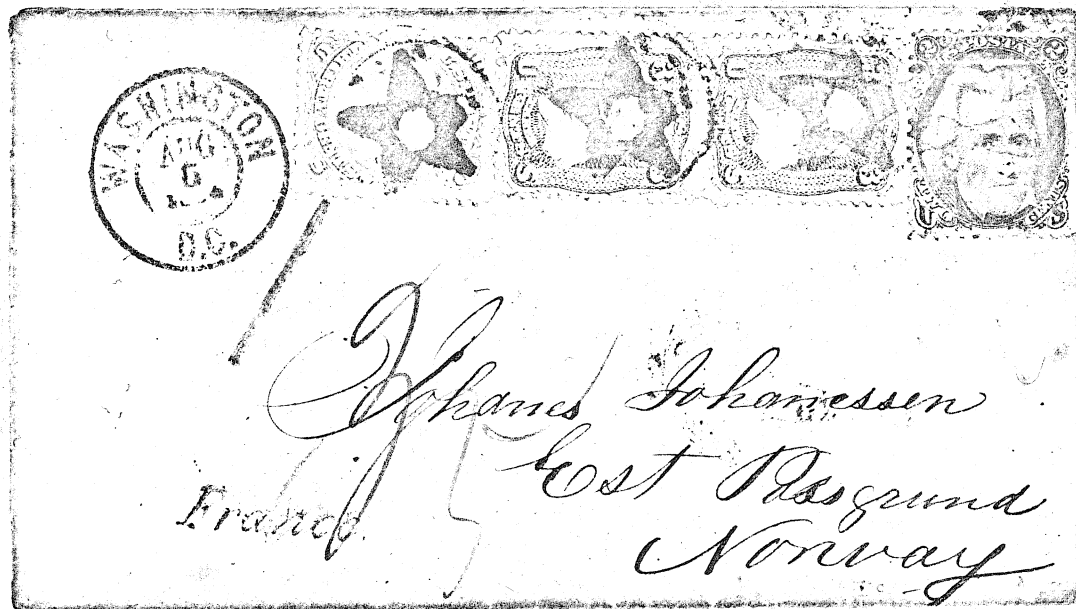 WASHINGTON
AUG
6
D.C.
Johanes Johanessen
Est Passgrund
Norway
Franco.